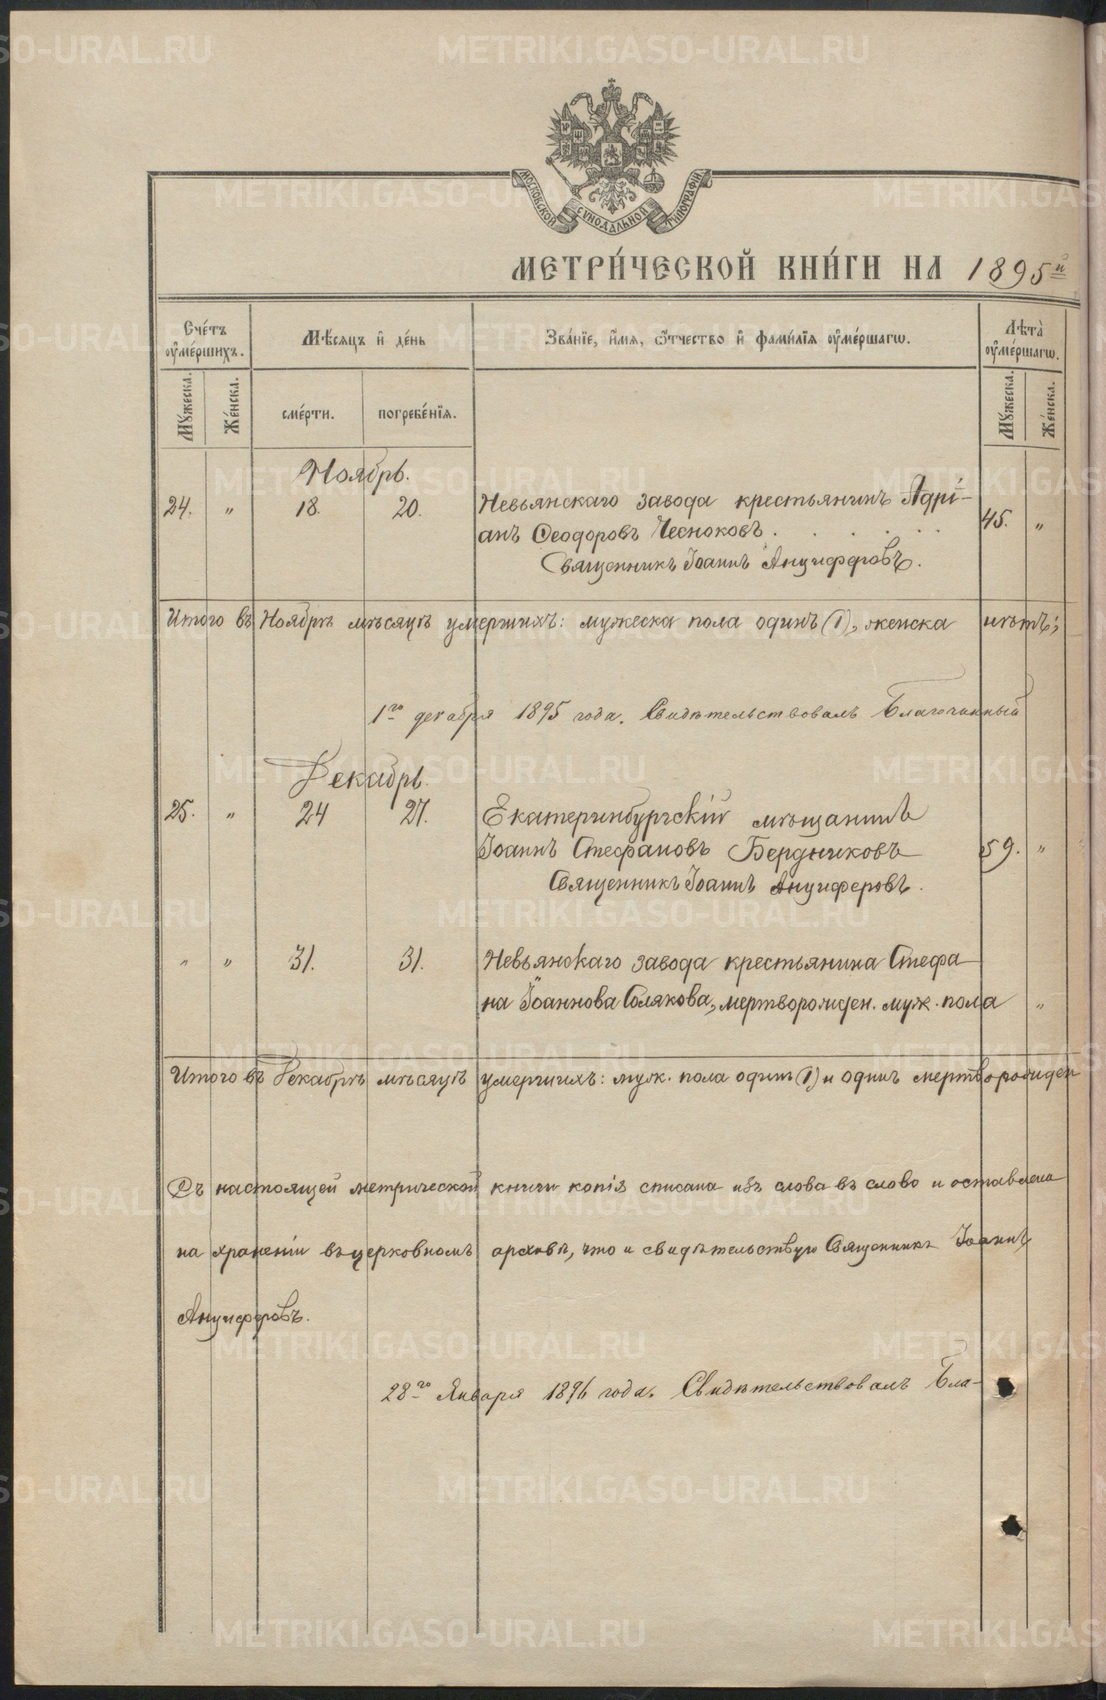 METRIKI.GASO-URAL.RU
МОСКОВСКОЙ СѴНОДАЛЬНОЙ ТИПОГРАФІИ
МЕТРИ́ЧЕСКОЙ КНИ́ГИ НА 1895й
Сче́тъ оу҆ме́ршихъ.
Мѣ́сяцъ и҆ де́нь
Зва́нїе, и҆́мя, ѻ҆́тчество и҆ фами́лїя оу҆ме́ршагѡ.
Лѣта̀ оу҆ме́ршагѡ.
Му́жеска. Же́нска. сме́рти. погребе́нїя. Му́жеска. Же́нска.
Ноябрь.
24. " 18. 20. Невьянскаго завода крестьянинъ Адрі-
45. "
анъ Ѳеодоровъ Чесноковъ . . . . .
Священникъ Іоаннъ Анцифферовъ.
Итого въ Ноябрѣ мѣсяцѣ умершихъ: мужеска пола одинъ (1), женска нѣтъ;
1го декабря 1895 года. Свидѣтельствовалъ Благочинный
Декабрь.
25. " 24 27. Екатеринбургскій мѣщанинъ
Іоаннъ Стефановъ Бердниковъ 59. "
Священникъ Іоаннъ Анциферовъ.
" " 31. 31. Невьянскаго завода крестьянина Стефа-
на Іоаннова Солякова, мертворожден. муж. пола "
Итого въ Декабрѣ мѣсяцѣ умершихъ: муж. пола один (1) и одинъ мертворожден
Съ настоящей метрической книги копія списана изъ слова въ слово и оставлена
на храненіи въ церковномъ архивѣ, что и свидѣтельствую Священникъ Іоаннъ
Анцифферовъ.
28го Января 1896 года. Свидѣтельствовалъ Бла-